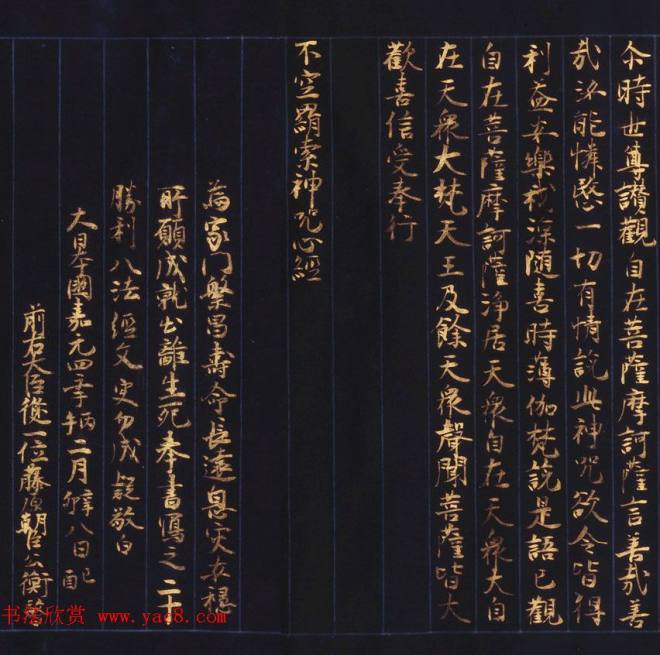 尒時世尊讚觀自在菩薩摩訶薩言善哉善
哉汝能憐愍一切有情說此神咒欲令皆得
利益安樂我深随喜時薄伽梵說是語已觀
自在菩薩摩訶薩淨居天衆自在天衆大自
在天衆大梵天王及餘天衆聲聞菩薩皆大
歡喜信受奉行
不空羂索神咒心經
為家門繁昌壽命長遠息灾
所願成就出離生死奉書寫之二十
勝利八法經文更勿成疑敬白
大日本國嘉元四年丙午二月八日
前右大臣從一位藤原朝臣公衡
书法欣赏 www.yac8.com